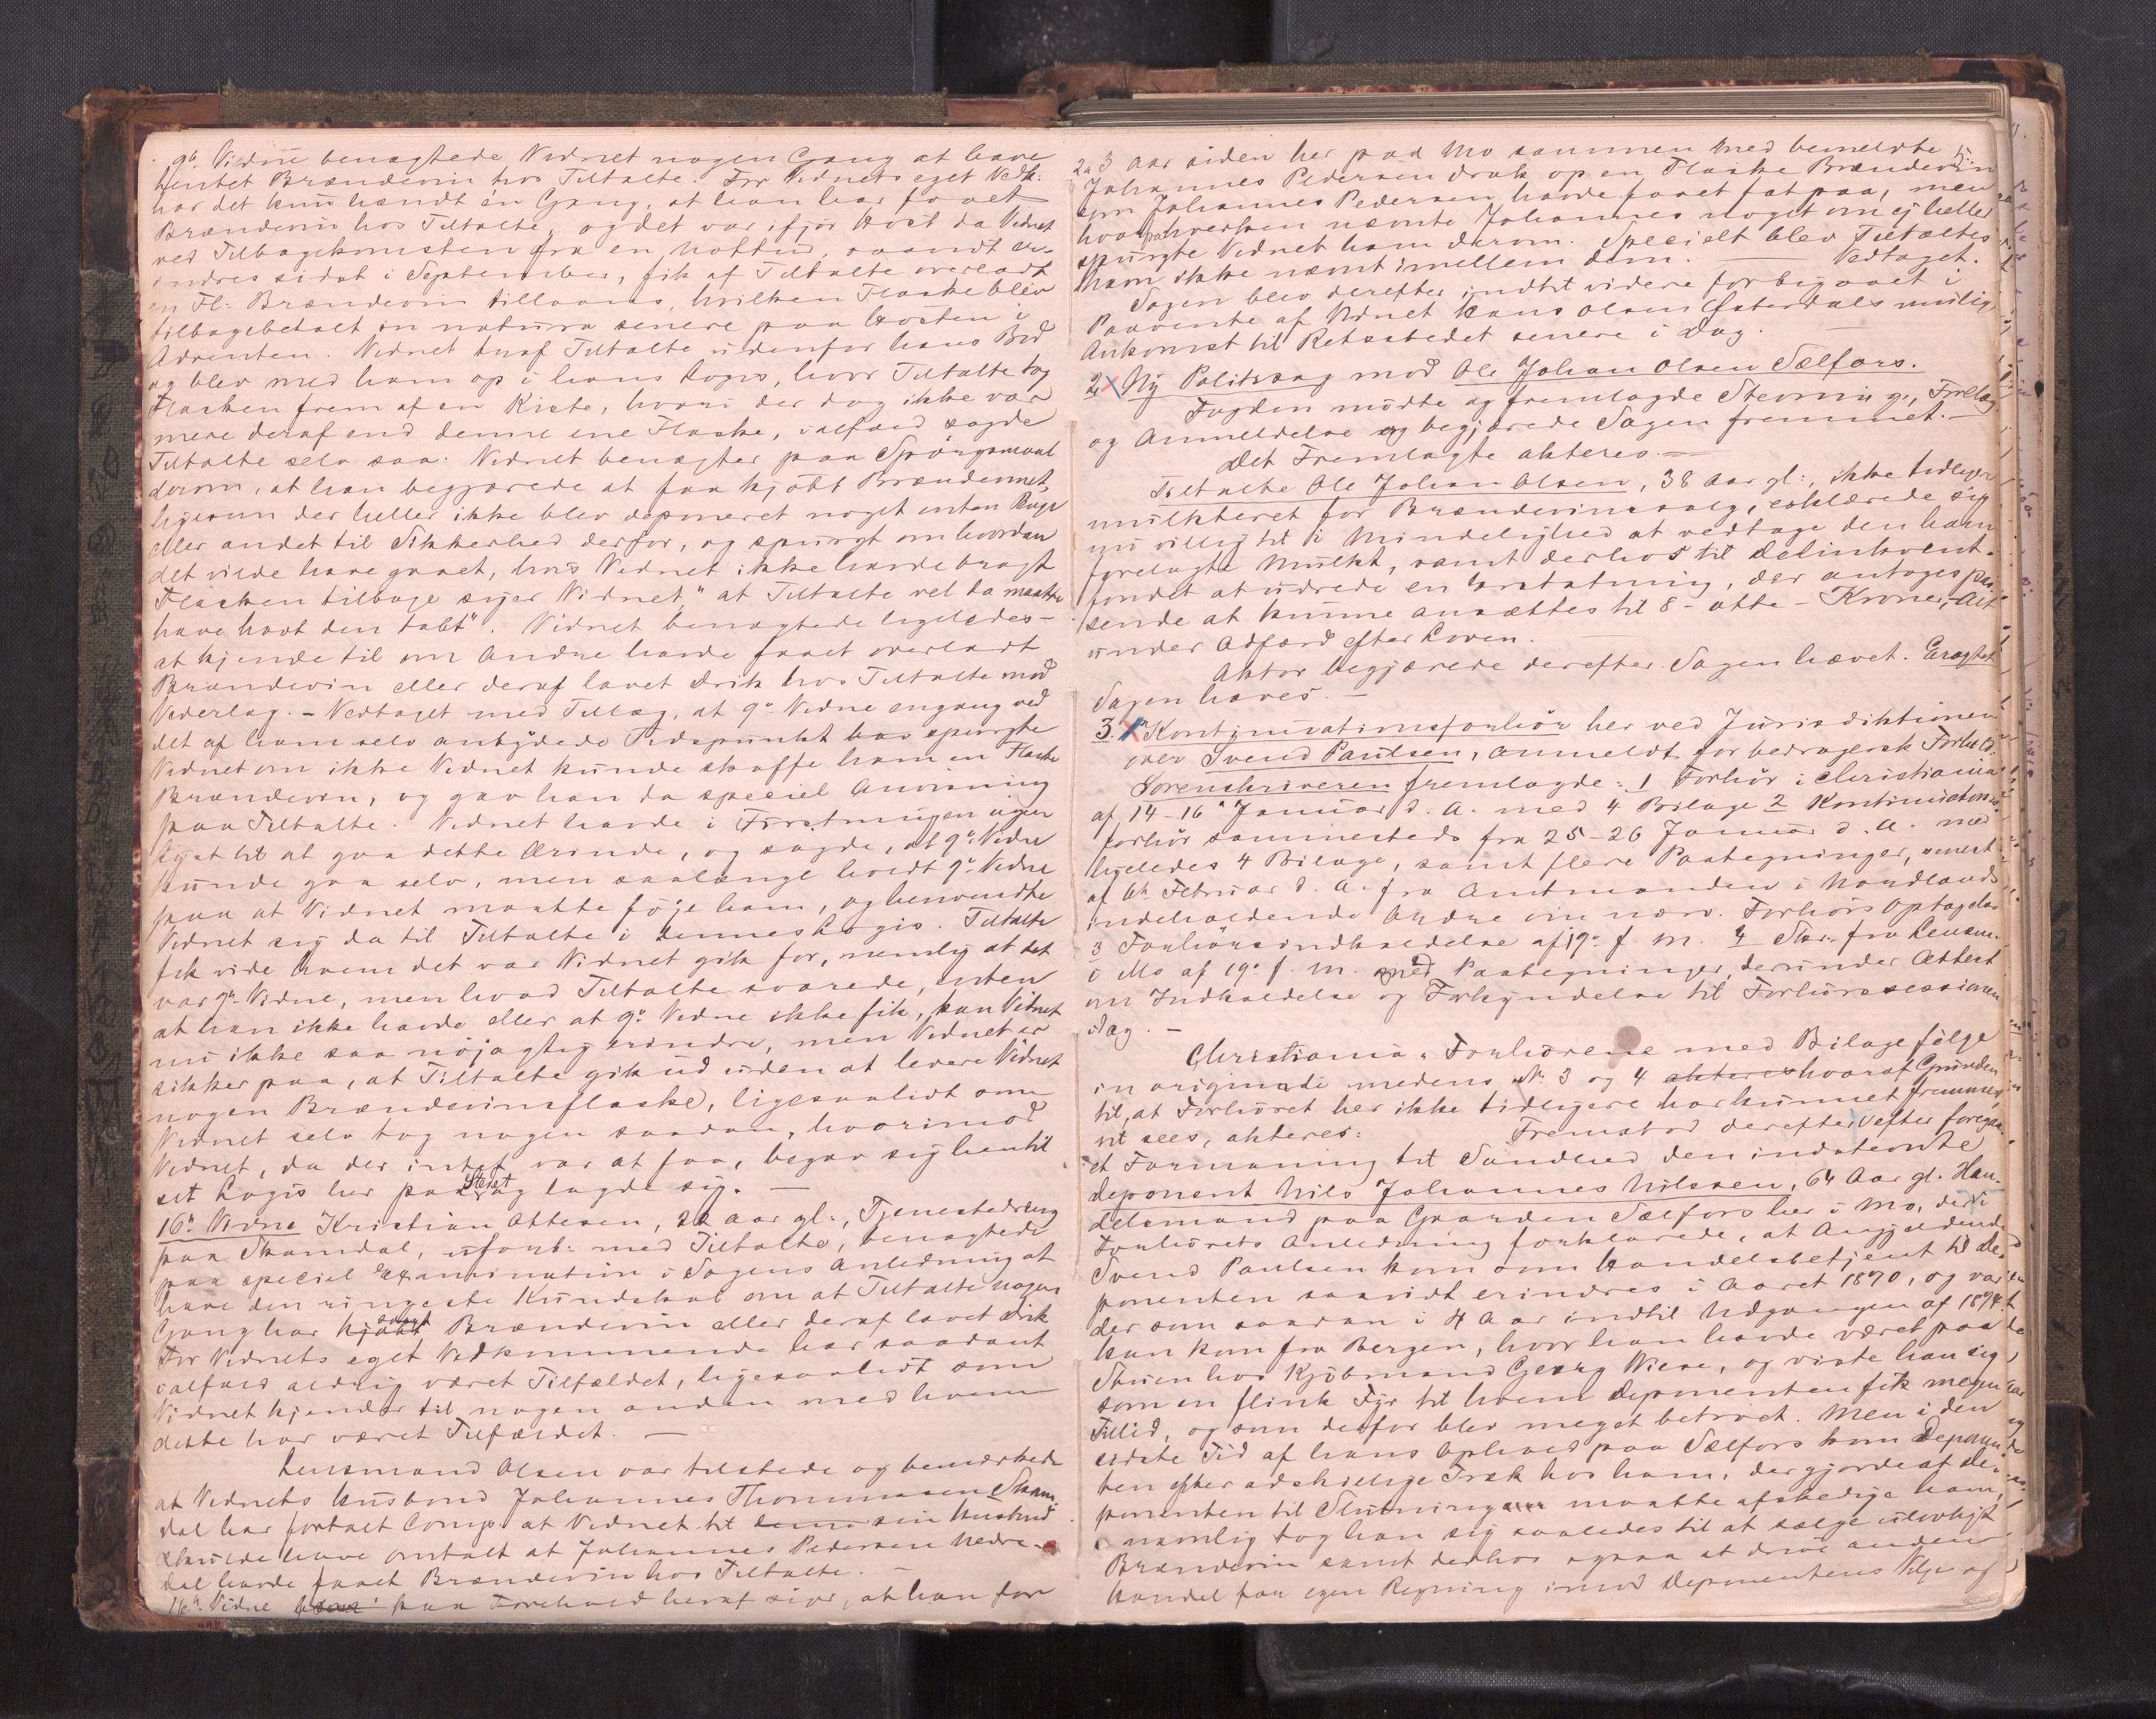 9de Vidne benægtede Vidnet nogen Gang at have
hentet Brændevin hos Tiltalte. For Vidnets eget Vedk:
har det kun hændt én Gang, at han har faaet
Brændevin hos Tiltalte, og det var ifjor Høst da Vidnet
ved Tilbagekomsten fra en, saavidt er-
indres sidst i September, fik af Tiltalte overladt
en Fl: Brændevin tillaans, hvilken Flaske blev
tilbagebetalt in natura senere paa Høsten i
Adventen. Vidnet traf Tiltalte udenfor hans Bod
og blev med ham op i hans Logis, hvor Tiltalte tog
Flasken frem af en Kiste, hvori der dog ikke var
mere deraf end denne ene Flaske, ialfald sagde
Tiltalte selv saa. Vidnet benægter paa Spørgsmaal
derom, at han begjærede at faa kjøbt Brændevinet,
ligesom der heller ikke blev deponeret noget enten Penge
eller andet til Sikkerhed derfor, og spurgt om hvordan
det vilde have gaaet, hvis Vidnet ikke havde bragt
Flasken tilbage siger Vidnet "at Tiltalte vel da maatte
have havt den tabt". Vidnet benægtede ligeledes
at kjende til om Andre havde faaet overladt
Brændevin eller deraf lavet Drik hos Tiltalte mod
Vederlag. - Vedtaget med Tillæg, at 9de Vidne engang ved
det af ham selv antydede Tidspunkt har spurgte
Vidnet om ikke Vidnet kunde skaffe ham en Flaske
Brændevin, og gav han da speciel Anvisning
paa Tiltalte. Vidnet havde i Førstningen ingen
Lyst til at gaa dette Ærinde, og sagde, at 9de Vidne
kunde gaa selv, men saalænge holdt 9de Vidne
paa at Vidnet maatte føje ham, og henvendte
Vidnet sig da til Tiltalte i dennes Logis. Tiltalte
fik vide hvem det var Vidnet gik for, nemlig at det
var 9de Vidne, men hvad Tiltalte svarede, enten
at han ikke havde eller at 9de Vidne ikke fik, kan Vidnet
nu ikke saa nøjagtig erindre, men Vidnet er
sikker paa, at Tiltalte gik ud uden at levere Vidnet
nogen Brændevinsflaske, ligesaalidt som
Vidnet selv tog nogen saadan, hvorimod
Vidnet, da der intet var at faa, begav sig hen til
sit Logis her paa Stedet og lagde sig. —
16de Vidne Kristian Ottesen, 22 Aar gl:, Tjenestedreng
paa Skamdal, uforb: med Tiltalte, benægtede
paa speciel Examination i Sagens Anledning at
have den ringeste Kundskab om at Tiltalte nogen
Gang har kjøbt solgt Brændevin eller deraf lavet Drik
For Vidnets eget Vedkommende har saadant
ialfald aldrig været Tilfældet, ligesaalidt som
Vidnet kjender til nogen anden med hvem
dette har været Tilfældet. —
Lensmand Olsen var tilstede og bemærkede
at Vidnets Husbond Johannes Thommasen Skam-
dal har fortalt Comp. at Vidnet til sin Husbond
skulde have omtalt at Johannes Pedersen Nedre-
dal havde faaet Brændevin hos Tiltalte. —
16de Vidne paa Forehold heraf siger, at han for
2 a 3 Aar siden her paa Mo sammen med bemeldte
Johannes Pedersen drak op en Flaske Brændevin
som Johannes Pedersen havde faaet fat paa, men
hvorfra hverken nævnte Johannes noget om ej heller
spurgte Vidnet ham derom. Specielt blev Tiltaltes
Navn ikke nævnt imellem dem. — Vedtaget.
Sagen blev derefter indtil videre forbigaaet i
Paavente af Vidnet Hans Olsen Østerdals mulige
Ankomst til Retsstedet senere i Dag. —
2. Ny Politisag mod Ole Johan Olsen Selfors.
Fogden mødte og fremlagde Stevning, Forelæg
og Anmeldelse og begjærede Sagen fremmet. —
Det Fremlagte akteres. —
Tiltalte Ole Johan Olsen, 38 Aar gl:, ikke tidligere
mulkteret for Brændevinssalg, erklærede sig
nu villig til i Mindelighed at vedtage den ham
forelagte Mulkt, samt derhos til Delinkvent-
fondet at udrede en Erstatning, der antoges pas-
sende at kunne ansættes til 8 - otte - Kroner, Alt
under Adfærd efter Loven. —
Aktor begjærede derefter Sagen hævet. Eragtet
Sagen hæves. —
3. Kontinuationsforhør her ved Jurisdiktionen
over Svend Paulsen, anmeldt for bedragersk Forhold.
Sorenskriveren fremlagde: 1 Forhør i Christiania
af 14-16de Januar d. A. med 4 Bilage 2 Kontinuations
forhør sammesteds fra 25-26 Januar d. A. med
ligeledes 4 Bilage, samt flere Paategninger, senest
af 6te Februar d. A. fra Amtmanden i Nordlands
indeholdende Ordre om nærv. Forhørs Optagelse
3 Forhørsindkaldelse af 19de f. M. 4 Skr. fra Lensm.
i Mo af 19de f. M. med Paategninger, derunder Attest
om Indkaldelse og Forkyndelse til Forhørssessionen
idag. —
Christiania-Forhørene med Bilage følge
in originali medens No 3 og 4 akteres hvoraf Grunden
til, at Forhøret her ikke tidligere har kunnet fremmes
vil sees, akteres: Fremstod derefter efter foregaa-
et Formaning til Sandhed den indstevnte
Deponent Nils Johannes Nilssen, 64 Aar gl. Han-
delsmand paa Gaarden Selfors her i Mo, der i
Forhørets Anledning forklarede, at Angjældende
Svend Paulsen kom som Handelsbetjent til De-
ponenten saavidt erindres i Aaret 1890, og var
der som saadan i 4 Aar indtil Udgangen af 1894.
Han kom fra Bergen, hvor han havde været paa
Stuen hos Kjøbmand Georg Wiese, og viste han sig
som en flink Fyr til hvem Deponenten fik megen
Tillid, og som derfor blev meget betroet. Men i den
sidste Tid af hans Ophold paa Selfors kom Deponen-
ten efter adskillige Træk hos ham, der gjorde at De-
ponenten til Slutning maatte afskedige ham,
nemlig tog han sig saaledes til at sælge ulovligt
Brændevin samt derhos ogsaa at drive anden
Handel for egen Regning imod Deponentens Vilje og